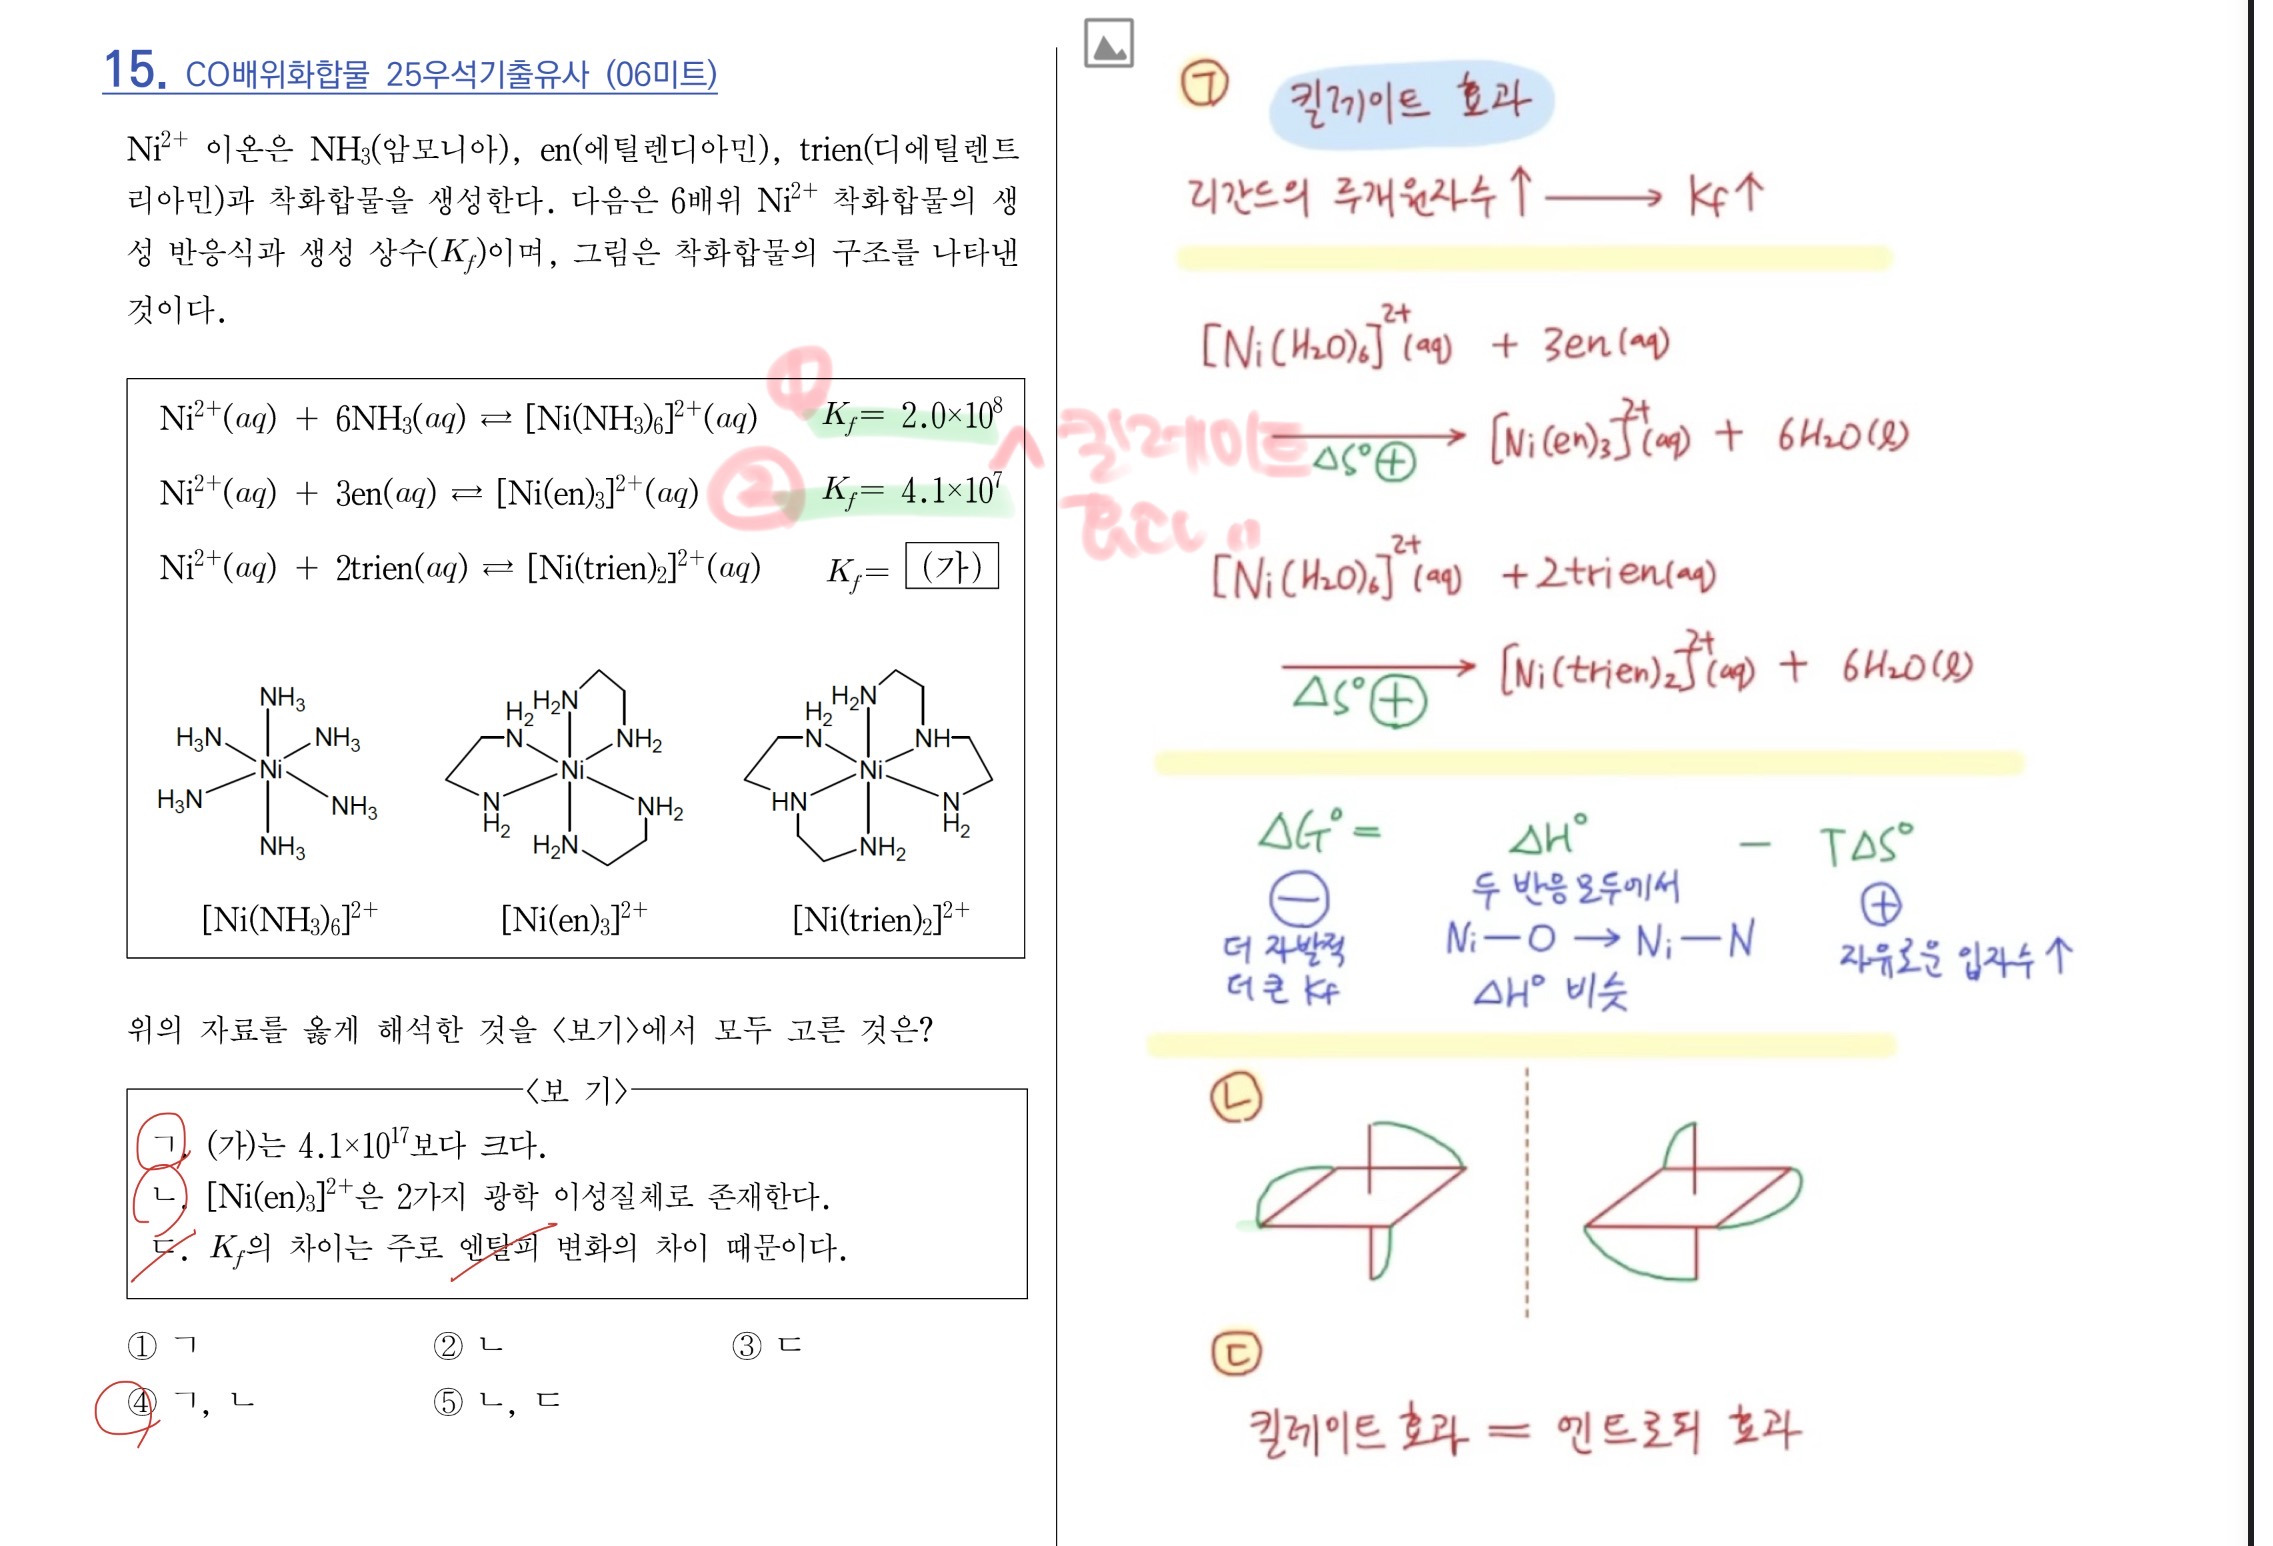 15. CO배위화합물 25우석기출유사 (06미트)
Ni2+ 이온은 NH3(암모니아), en(에틸렌디아민), trien(디에틸렌트
리아민)과 착화합물을 생성한다. 다음은 6배위 Ni2+ 착화합물의 생
성 반응식과 생성 상수(Kf)이며, 그림은 착화합물의 구조를 나타낸
것이다.
①
Ni2+(aq) + 6NH3(aq) ⇌ [Ni(NH3)6]2+(aq) Kf= 2.0×10^8
②
Ni2+(aq) + 3en(aq) ⇌ [Ni(en)3]2+(aq) Kf= 4.1×10^7
Ni2+(aq) + 2trien(aq) ⇌ [Ni(trien)2]2+(aq) Kf= (가)
NH3
H3N NH3
Ni
H3N NH3
NH3
H2 H2N
N NH2
Ni
N NH2
H2 H2N
H2 H2N
N NH
Ni
HN N
H2
NH2
[Ni(NH3)6]2+ [Ni(en)3]2+ [Ni(trien)2]2+
위의 자료를 옳게 해석한 것을 〈보기〉에서 모두 고른 것은?
〈보 기〉
ㄱ. (가)는 4.1×10^17보다 크다.
ㄴ. [Ni(en)3]2+은 2가지 광학 이성질체로 존재한다.
ㄷ. Kf의 차이는 주로 엔탈피 변화의 차이 때문이다.
① ㄱ ② ㄴ ③ ㄷ
④ ㄱ, ㄴ ⑤ ㄴ, ㄷ
ㄱ 킬레이트 효과
리간드의 주개원자수↑ → Kf↑
[Ni(H2O)6]2+(aq) + 3en(aq)
킬레이트
→ [Ni(en)3]2+(aq) + 6H2O(l)
ΔS°⊕
[Ni(H2O)6]2+(aq) +2trien(aq)
→ [Ni(trien)2]2+(aq) + 6H2O(l)
ΔS°⊕
ΔG°= ΔH° - TΔS°
⊖ 두 반응 모두에서 ⊕
더 자발적 Ni-O → Ni-N 자유로운 입자수↑
더 큰 Kf ΔH° 비슷
ㄴ
ㄷ
킬레이트 효과 = 엔트로피 효과